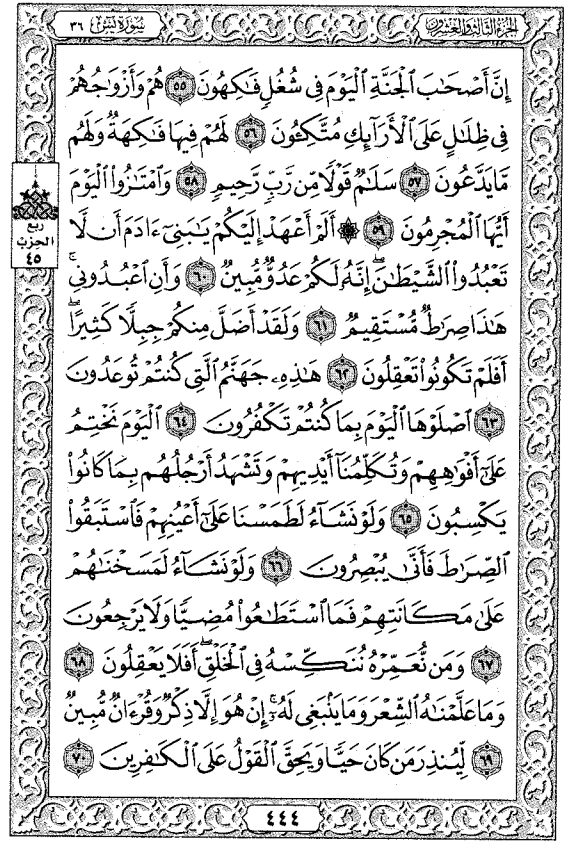 سورة يس ٣٦
الجزء الثالث والعشرون
إِنَّ أَصْحَٰبَ ٱلْجَنَّةِ ٱلْيَوْمَ فِى شُغُلٍ فَٰكِهُونَ ٥٥ هُمْ وَأَزْوَٰجُهُمْ
فِى ظِلَٰلٍ عَلَى ٱلْأَرَآئِكِ مُتَّكِـُٔونَ ٥٦ لَهُمْ فِيهَا فَٰكِهَةٌ وَلَهُم
مَّا يَدَّعُونَ ٥٧ سَلَٰمٌ قَوْلًا مِّن رَّبٍّ رَّحِيمٍ ٥٨ وَٱمْتَٰزُوا۟ ٱلْيَوْمَ
أَيُّهَا ٱلْمُجْرِمُونَ ٥٩ ۞ أَلَمْ أَعْهَدْ إِلَيْكُمْ يَٰبَنِىٓ ءَادَمَ أَن لَّا
تَعْبُدُوا۟ ٱلشَّيْطَٰنَ ۖ إِنَّهُۥ لَكُمْ عَدُوٌّ مُّبِينٌ ٦٠ وَأَنِ ٱعْبُدُونِى ۚ
هَٰذَا صِرَٰطٌ مُّسْتَقِيمٌ ٦١ وَلَقَدْ أَضَلَّ مِنكُمْ جِبِلًّا كَثِيرًا ۖ
أَفَلَمْ تَكُونُوا۟ تَعْقِلُونَ ٦٢ هَٰذِهِۦ جَهَنَّمُ ٱلَّتِى كُنتُمْ تُوعَدُونَ
٦٣ ٱصْلَوْهَا ٱلْيَوْمَ بِمَا كُنتُمْ تَكْفُرُونَ ٦٤ ٱلْيَوْمَ نَخْتِمُ
عَلَىٰٓ أَفْوَٰهِهِمْ وَتُكَلِّمُنَآ أَيْدِيهِمْ وَتَشْهَدُ أَرْجُلُهُم بِمَا كَانُوا۟
يَكْسِبُونَ ٦٥ وَلَوْ نَشَآءُ لَطَمَسْنَا عَلَىٰٓ أَعْيُنِهِمْ فَٱسْتَبَقُوا۟
ٱلصِّرَٰطَ فَأَنَّىٰ يُبْصِرُونَ ٦٦ وَلَوْ نَشَآءُ لَمَسَخْنَٰهُمْ
عَلَىٰ مَكَانَتِهِمْ فَمَا ٱسْتَطَٰعُوا۟ مُضِيًّا وَلَا يَرْجِعُونَ
٦٧ وَمَن نُّعَمِّرْهُ نُنَكِّسْهُ فِى ٱلْخَلْقِ ۖ أَفَلَا يَعْقِلُونَ ٦٨
وَمَا عَلَّمْنَٰهُ ٱلشِّعْرَ وَمَا يَنۢبَغِى لَهُۥٓ ۚ إِنْ هُوَ إِلَّا ذِكْرٌ وَقُرْءَانٌ مُّبِينٌ
٦٩ لِّيُنذِرَ مَن كَانَ حَيًّا وَيَحِقَّ ٱلْقَوْلُ عَلَى ٱلْكَٰفِرِينَ ٧٠
ربع
الحزب
٤٥
٤٤٤